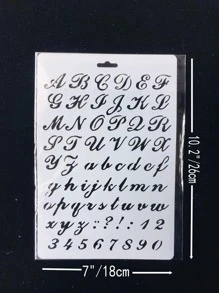 A B C D E F
G H I J K L
M N O P Q R
S T U V W X
Y Z a b c d e f
g h i j k l m n
o p q r s t u v w
x y z : ? ! ; 1 2
3 4 5 6 7 8 9 0
7"/18cm
10.2"/26cm